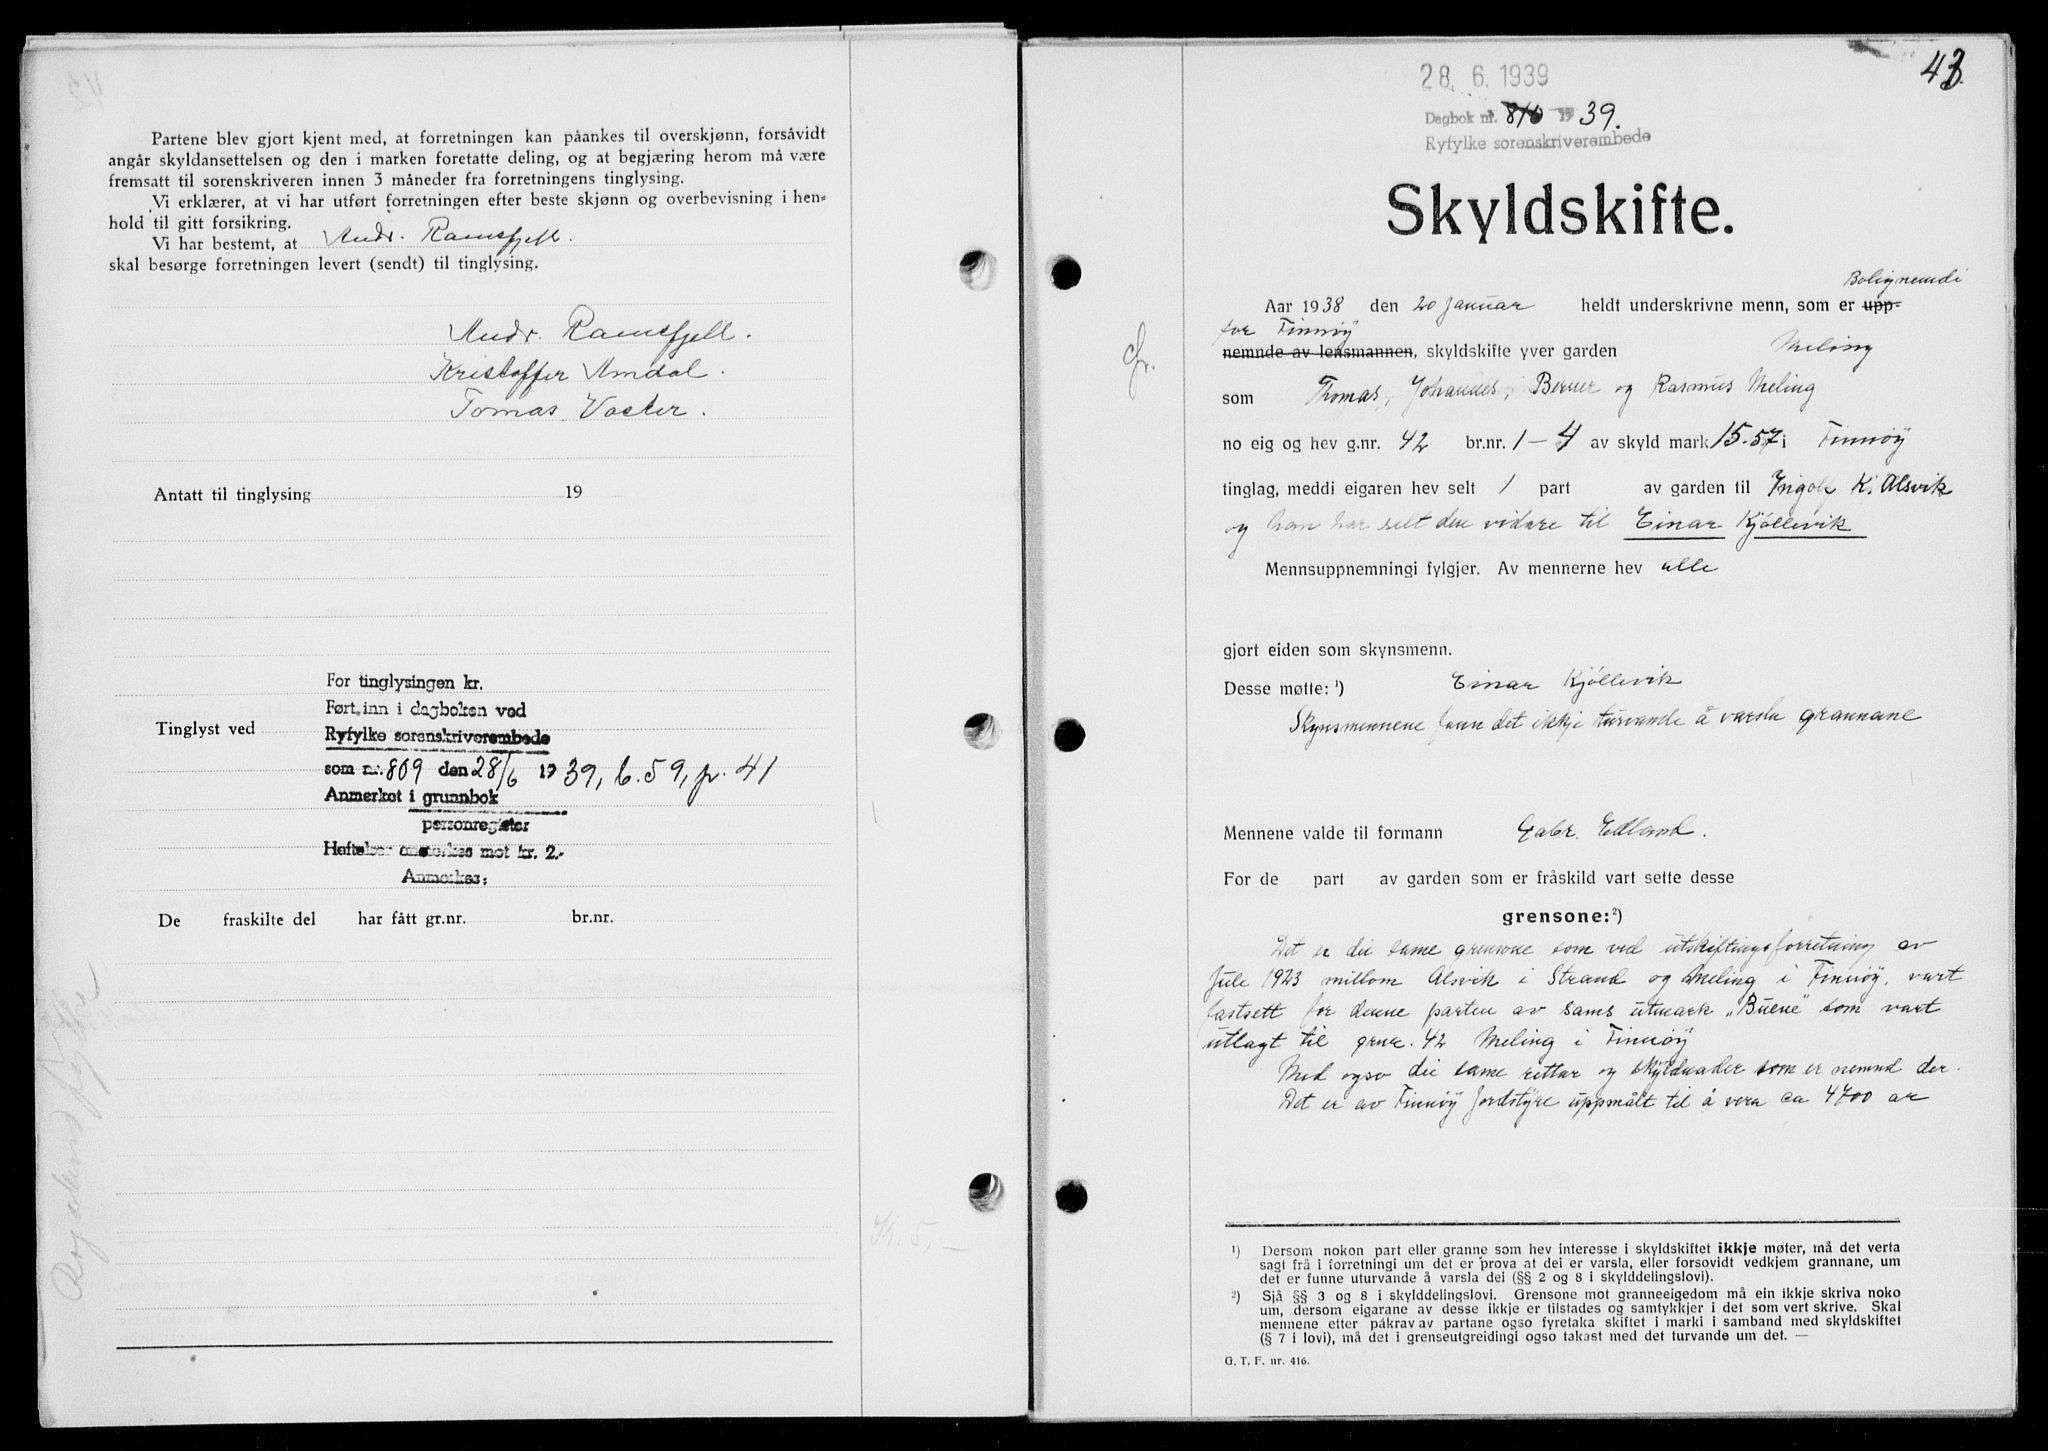 Partene blev gjort kjent med, at forretningen kan påankes til overskjønn, forsåvidt
angår skyldansettelsen og den i marken foretatte deling, og at begjæring herom må være
fremsatt til sorenskriveren innen 3 måneder fra forretningens tinglysing.
Vi erklærer, at vi har utført forretningen efter beste skjønn og overbevisning i hen-
hold til gitt forsikring.
Vi har bestemt, at Andr. Ramsfjell.
skal besørge forretningen levert (sendt) til tinglysing.
Andr. Ramsfjell.
Kristoffer Amdal.
Tomas Vaster.
Antatt til tinglysing 19
For tinglysingen kr.
Ført inn i dagboken ved
Tinglyst ved
Ryfylke sorenskriverembede
som nr. 809 den 28/6 1939, b. 59, p. 41
Anmerket i grunnbok
personregister
Heftelser anmerkes mot kr. 2.-
Anmerkes:
De fraskilte del har fått gr.nr. br.nr.
Kr. 5,-
43.
28. 6. 1939
Dagbok nr. 810 1939.
Ryfylke sorenskriverembede
Skyldskifte.
Bolignemdi
Aar 1938 den 20 Januar heldt underskrivne menn, som er upp-
for Finnøy
nemnde av lensmannen, skyldskifte yver garden Meling
som Thomas, Johannes, Berner og Rasmus Meling
no eig og hev g.nr. 42 br.nr. 1-4 av skyld mark 15.57 i Finnøy
tinglag, meddi eigaren hev selt 1 part av garden til Ingolf K. Alsvik
og han har selt den vidare til Einar Kjöllevik
Mennsuppnemningi fylgjer. Av mennerne hev alle
gjort eiden som skynsmenn.
Desse møtte: ¹) Einar Kjöllevik
Skynsmennene fann det ikkje turvande å varsla grannane
Mennene valde til formann Gabr. Edland.
For de part av garden som er fråskild vart sette desse
grensone: ²)
Det er dei same grensone som ved utskiftingsforretning av
Jule 1923 millom Alsvik i Strand og Meling i Finnöy, vart
fastsett for denne parten av sams utmark „Buene" som vart
utlagt til gnr. 42 Meling i Finnöy
Med ogso dei same rettar og skyldnader som er nemnd der.
Det er av Finnöy Jordstyre uppmålt til å vera ca 4700 ar
¹) Dersom nokon part eller granne som hev interesse i skyldskiftet ikkje møter, må det verta
sagt frå i forretningi um det er prova at dei er varsla, eller forsovidt vedkjem grannane, um
det er funne uturvande å varsla dei (§§ 2 og 8 i skylddelingslovi).
²) Sjå §§ 3 og 8 i skylddelingslovi. Grensone mot granneeigedom må ein ikkje skriva noko
um, dersom eigarane av desse ikkje er tilstades og samtykkjer i det som vert skrive. Skal
mennene etter påkrav av partane ogso fyretaka skiftet i marki i samband med skyldskiftet
(§ 7 i lovi), må det i grenseutgreidingi ogso takast med det turvande um det. —
G. T. F. nr. 416.